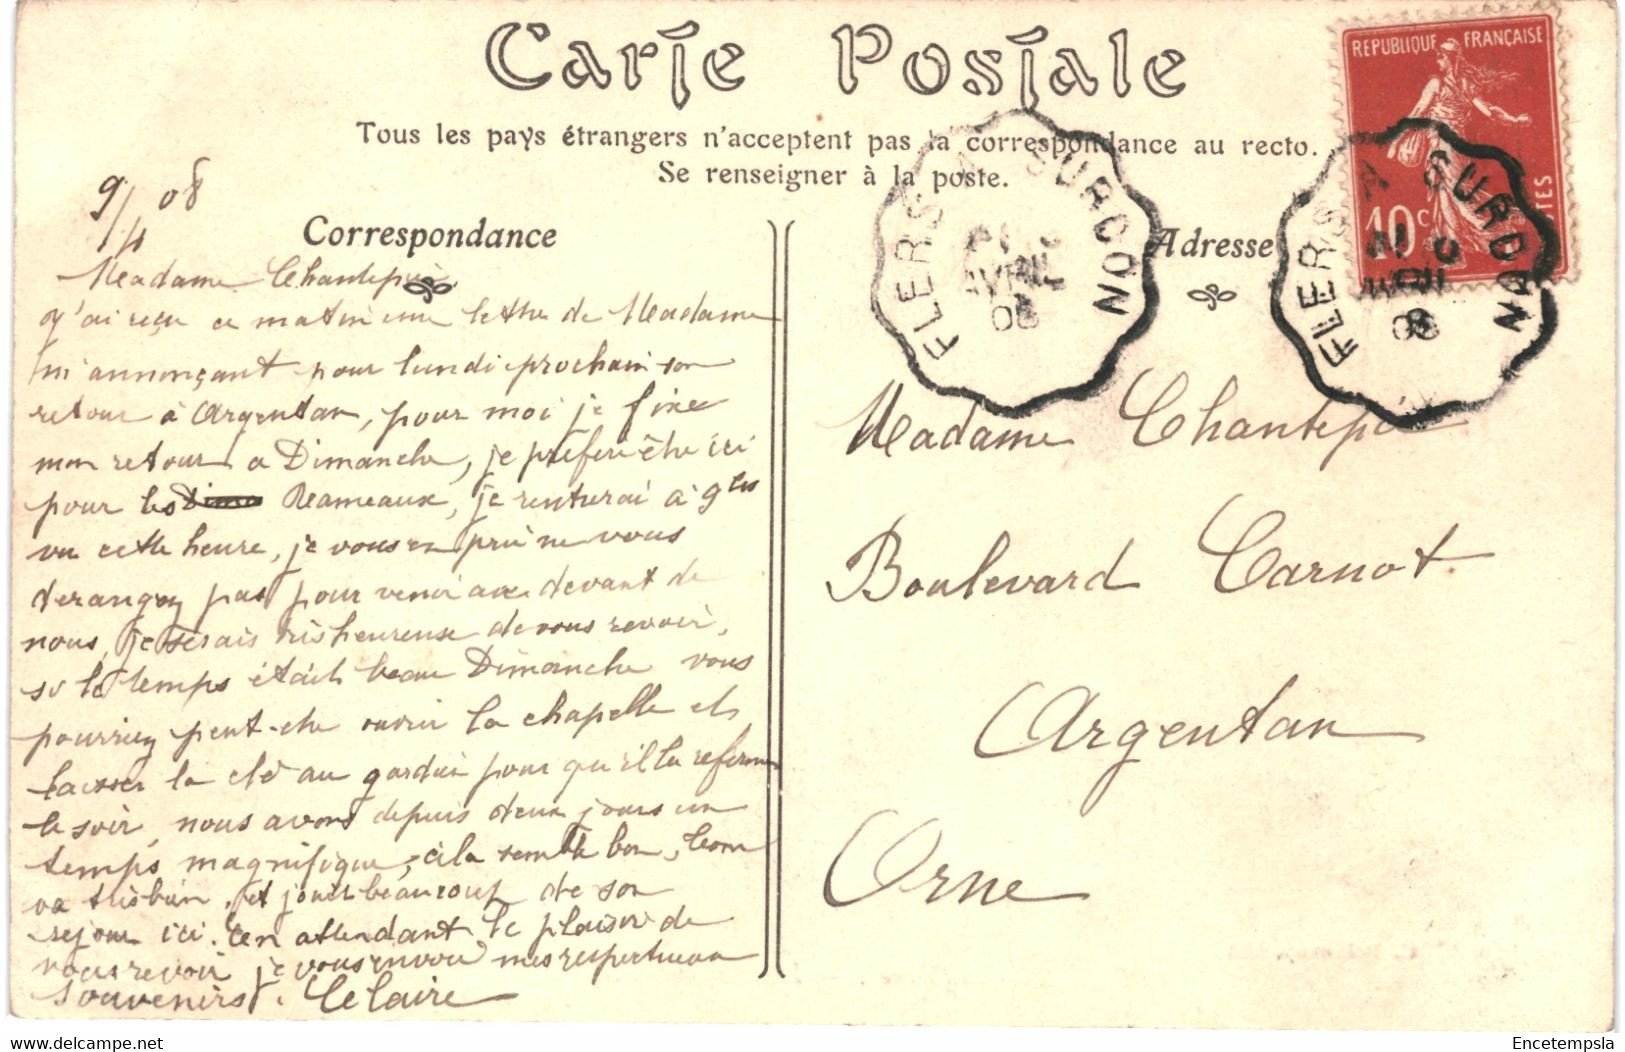 Carte Postale
Tous les pays étrangers n'acceptent pas la correspondance au recto.
Se renseigner à la poste.
REPUBLIQUE FRANÇAISE
10c
POSTES
FLERS A SURDON
AVRIL
08
FLERS A SURDON
AVRIL
08
9/4 08
Correspondance
Adresse
Madame Chantepie
J'ai reçu ce matin une lettre de Madame
m'annonçant pour lundi prochain son
retour à Argentan, pour moi je fixe
mon retour a Dimanche, je préfère être ici
pour les Rameaux, je rentrerai à 9
ou cette heure, je vous en prie ne vous
derangez pas pour venir au devant de
nous, je serais très heureuse de vous revoir,
si le temps était beau Dimanche vous
pourriez peut-etre ouvrir la chapelle et
laisser la clé au gardien pour qu'il la referme
le soir, nous avons depuis deux jours un
temps magnifique, cela semble bon, Leon
va très bien, et jouit beaucoup de son
sejour ici. En attendant le plaisir de
vous revoir je vous envoie mes respectueux
souvenirs. Celaire
Madame Chantepie
Boulevard Carnot
Argentan
Orne
Encetempsla